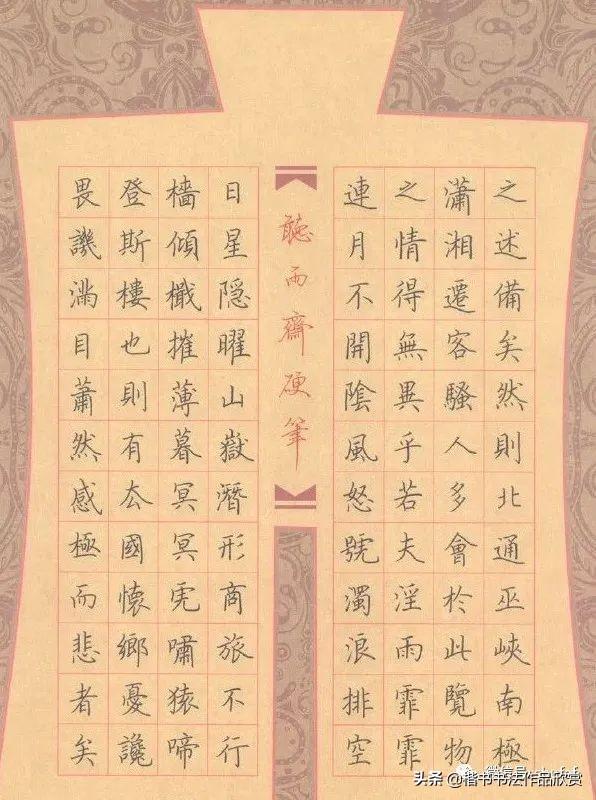 之述備矣然則北通巫峽南極
瀟湘遷客騷人多會於此覽物
之情得無異乎若夫淫雨霏霏
連月不開陰風怒號濁浪排空
聽雨齋硬筆
日星隱曜山嶽潛形商旅不行
檣傾檝摧薄暮冥冥虎嘯猿啼
登斯樓也則有去國懷鄉憂讒
畏譏滿目蕭然感極而悲者矣
头条 @楷书书法作品欣赏